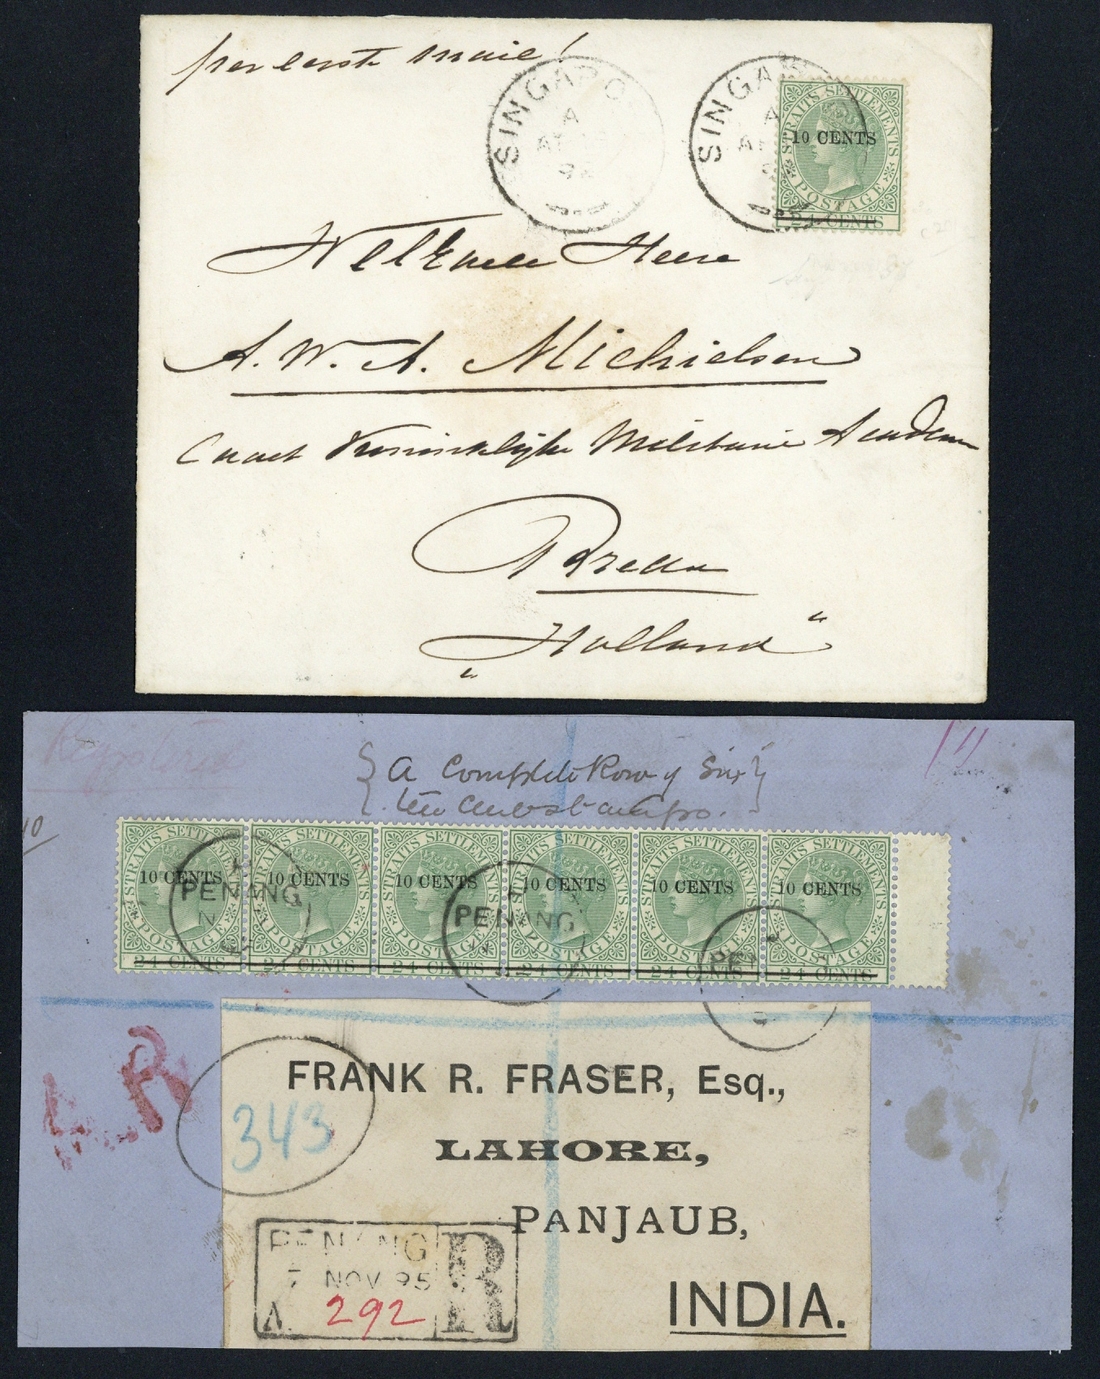 per eerste mail!
SINGAPO
A
AP
92
SINGA
A
AP
STRAITS SETTLEMENTS
10 CENTS
POSTAGE
24 CENTS
WelEdele Heere
A. W. A. Michielsen
Cadet Koninklijke Militaire Academie
Breda
"Holland"
Registered
{ A Complete Row of Six }
10
STRAITS SETTLEMENTS STRAITS SETTLEMENTS STRAITS SETTLEMENTS STRAITS SETTLEMENTS STRAITS SETTLEMENTS STRAITS SETTLEMENTS
10 CENTS 10 CENTS 10 CENTS 10 CENTS 10 CENTS 10 CENTS
PENANG PENANG PE
POSTAGE POSTAGE POSTAGE POSTAGE POSTAGE POSTAGE
24 CENTS 24 CENTS 24 CENTS 24 CENTS 24 CENTS 24 CENTS
A.R
343
FRANK R. FRASER, Esq.,
LAHORE,
PANJAUB,
INDIA.
PENANG R
7 NOV 95
292